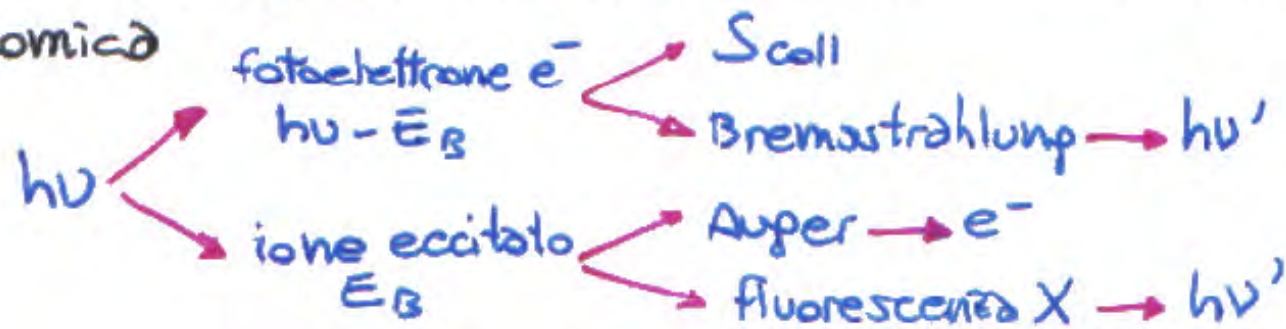 omica
fotoelettrone e⁻
hν - E_B
S coll
Bremsstrahlung → hν'
hν
ione eccitato
E_B
Auger → e⁻
fluorescenza X → hν'